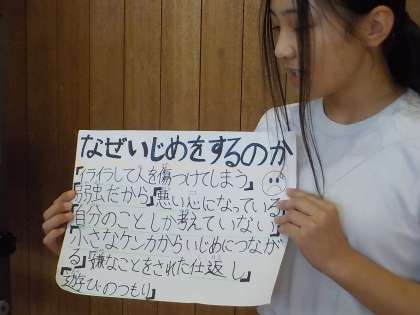 なぜいじめをするのか
『イライラして人を傷つけてしまう』
『弱虫だから』『悪い心になっている』
『自分のことしか考えていない』
『小さなケンカからいじめにつなが
る』『嫌なことをされた仕返し』
『遊びのつもり』